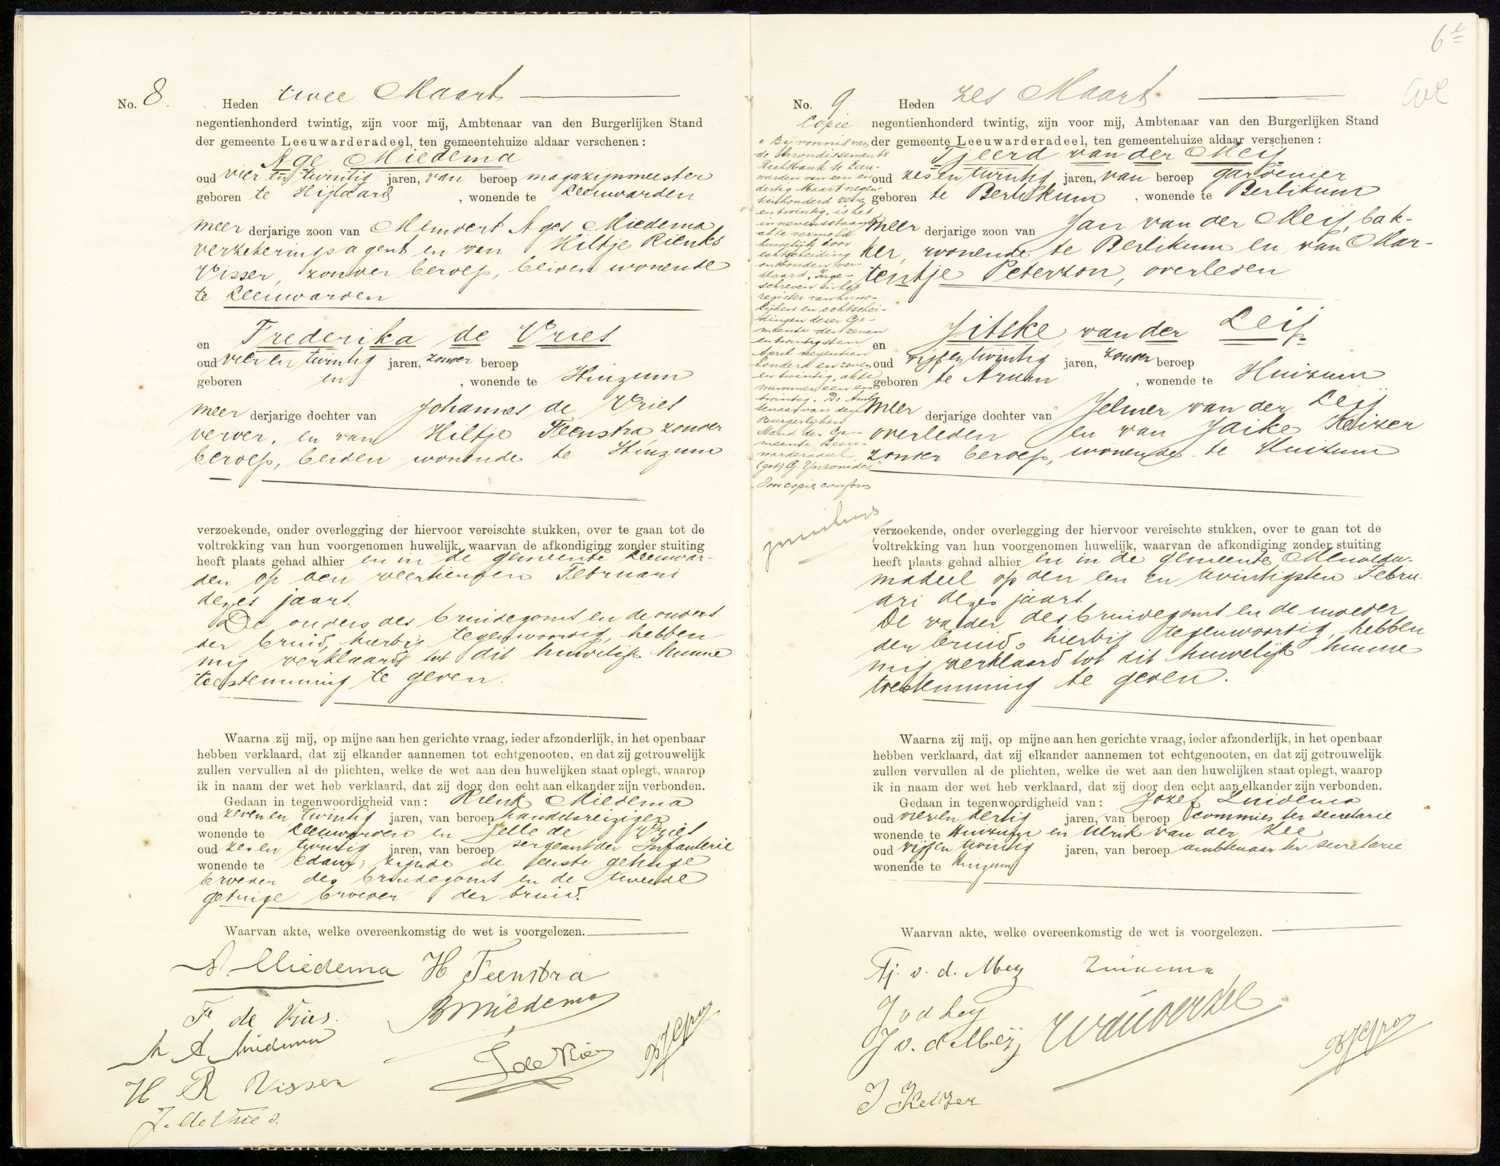 No. 8. Heden twee Maart
negentienhonderd twintig, zijn voor mij, Ambtenaar van den Burgerlijken Stand
der gemeente Leeuwarderadeel, ten gemeentehuize aldaar verschenen:
Age Miedema
oud vier en twintig jaren, van beroep magazijnmeester
geboren te Hijdaard, wonende te Leeuwarden
meerderjarige zoon van Meinvert Ages Miedema
verzekeringsagent en van Hiltje Rienks
Visser, zonder beroep, beiden wonende
te Leeuwarden
en Frederika de Vries
oud vier en twintig jaren, zonder beroep
geboren en, wonende te Huizum
meerderjarige dochter van Johannes de Vries
verver, en van Hiltje Feenstra zonder
beroep, beiden wonende te Huizum
verzoekende, onder overlegging der hiervoor vereischte stukken, over te gaan tot de
voltrekking van hun voorgenomen huwelijk, waarvan de afkondiging zonder stuiting
heeft plaats gehad alhier en in de gemeente Leeuwar-
den op den veertienden Februari
dezes jaars.
De ouders des bruidegoms en de ouders
der bruid, hierbij tegenwoordig, hebben
mij verklaard tot dit huwelijk hunne
toestemming te geven.
Waarna zij mij, op mijne aan hen gerichte vraag, ieder afzonderlijk, in het openbaar
hebben verklaard, dat zij elkander aannemen tot echtgenooten, en dat zij getrouwelijk
zullen vervullen al de plichten, welke de wet aan den huwelijken staat oplegt, waarop
ik in naam der wet heb verklaard, dat zij door den echt aan elkander zijn verbonden.
Gedaan in tegenwoordigheid van: Rienk Miedema
oud zeven en twintig jaren, van beroep handelsreiziger
wonende te Leeuwarden en Jelle de Vries
oud zes en twintig jaren, van beroep sergeant der Infanterie
wonende te Edam, zijnde de eerste getuige
broeder des bruidegoms en de tweede
getuige broeder der bruid.
Waarvan akte, welke overeenkomstig de wet is voorgelezen.
A Miedema H Feenstra
F de Vries. R Miedema
M A Miedema
J de Vries
H R Visser
J. de Vries.
6
No. 9 Heden zes Maart
negentienhonderd twintig, zijn voor mij, Ambtenaar van den Burgerlijken Stand
der gemeente Leeuwarderadeel, ten gemeentehuize aldaar verschenen:
Tjeerd van der Meij
oud zes en twintig jaren, van beroep gardenier
geboren te Berlikum, wonende te Berlikum
meerderjarige zoon van Jan van der Meij, bak-
ker, wonende te Berlikum en van Mar-
tentje Peterzon, overleden
en Jitske van der Leij
oud vijf en twintig jaren, zonder beroep
geboren te Arum, wonende te Huizum
meerderjarige dochter van Jelmer van der Leij
overleden en van Jaike Keizer
zonder beroep, wonende te Huizum
Copie
Bij vonnis van
de Arrondissements
Rechtbank te Leeu-
warden van een en
dertig Maart negen-
tienhonderd zeven
en twintig, is het
in nevenstaande
akte vermeld
huwelijk door
echtscheiding
ontbonden ver-
klaard. Inge-
schreven in het
register van huwe-
lijken en echtschei-
dingen dezer Ge-
meente den zeven
en twintigsten
April negentien
honderd en zeven
en twintig, akte
nummer een en
twintig. De Amb-
tenaar van den
Burgerlijken
Stand der Ge-
meente Leeu-
warderadeel,
Voor copie conform
verzoekende, onder overlegging der hiervoor vereischte stukken, over te gaan tot de
voltrekking van hun voorgenomen huwelijk, waarvan de afkondiging zonder stuiting
heeft plaats gehad alhier en in de gemeente Menalda-
madeel op den een en twintigsten Febru-
ari dezes jaars
De vader des bruidegoms en de moeder
der bruid, hierbij tegenwoordig, hebben
mij verklaard tot dit huwelijk hunne
toestemming te geven.
Waarna zij mij, op mijne aan hen gerichte vraag, ieder afzonderlijk, in het openbaar
hebben verklaard, dat zij elkander aannemen tot echtgenooten, en dat zij getrouwelijk
zullen vervullen al de plichten, welke de wet aan den huwelijken staat oplegt, waarop
ik in naam der wet heb verklaard, dat zij door den echt aan elkander zijn verbonden.
Gedaan in tegenwoordigheid van: Jozef Zuidema
oud vier en dertig jaren, van beroep commies ter secretarie
wonende te Huizum en Ulrik van der Zee
oud vijf en twintig jaren, van beroep ambtenaar ter secretarie
wonende te Huizum
Waarvan akte, welke overeenkomstig de wet is voorgelezen.
Tj. v. d. Meij Zuidema
J v d Leij
J v. d. Meij
J Keizer